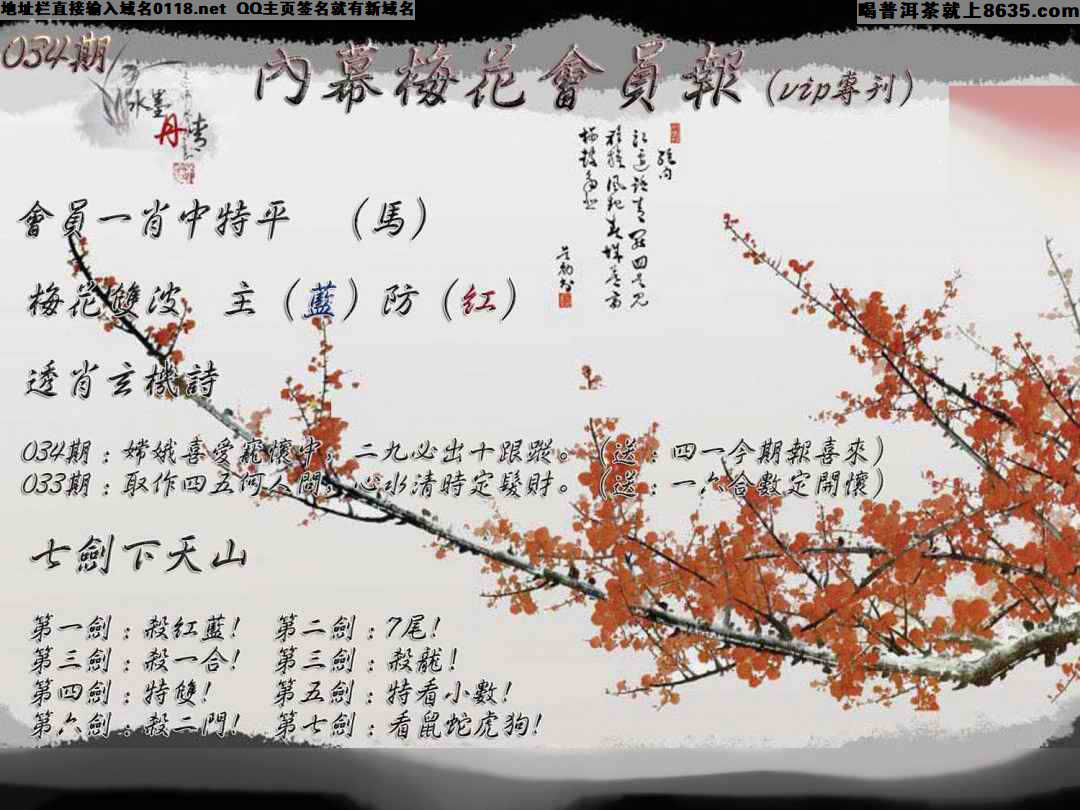 地址栏直接输入域名0118.net QQ主页签名就有新域名
喝普洱茶就上8635.com
034期
內幕梅花會員報(vip專刊)
水墨
丹青
會員一肖中特平 (馬)
梅花雙波 主(藍)防(紅)
透肖玄機詩
034期:嫦娥喜愛寵懷中,二九必出十跟蹤。(送:四一今期報喜來)
033期:取作四五何人間,心水清時定髮財。(送:一六合數定開懷)
七劍下天山
第一劍:殺紅藍! 第二劍:7尾!
第三劍:殺一合! 第三劍:殺龍!
第四劍:特雙! 第五劍:特看小數!
第六劍:殺二門! 第七劍:看鼠蛇虎狗!